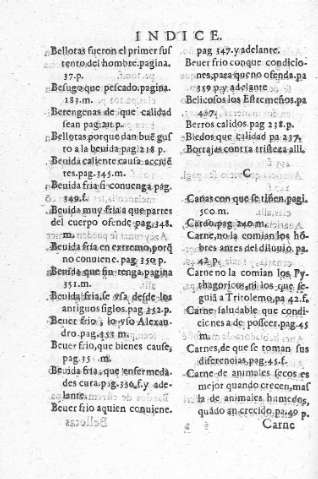 INDICE.
Bellotas fueron el primer sus
tento del hombre. pagina.
37. p.
Besugo que pescado. pagina.
183. m.
Berengenas de que calidad
sean pag. 211. p.
Bellotas porque dan buē gus
to a la beuida pag. 218 p.
Beuida caliente causa accidē
tes. pag. 345. m.
Beuida fria si conuenga pag.
349. f.
Beuida muy fria a que partes
del cuerpo ofende pag. 348.
m.
Beuida fria en extremo, porq̄
no conuiene. pag. 350 p.
Beuida que fin tenga pagina
351. m.
Beuida fria, se vsa desde los
antiguos siglos. pag. 352. p.
Beuer frio, lo vso Alexan-
dro. pag. 352 m.
Beuer frio, que bienes cause,
pag. 35 m.
Beuida fria, que enfermeda
des cura. p. 356. f. y ade-
lante.
Beuer frio a quien conuiene.
pag. 347. y adelante.
Beuer frio con que condicio-
nes, para que no ofenda. pa
359 p. y adelante
Belicosos los Estremeños. pa
457.
Berros calidos pag 238. p.
Biedos que calidad pa 237.
Borrajas contra tristeza alli.
C
Canas con que se tiñen. pagi.
500 m.
Cardo. pag 240 m.
Carne, no la comian los hō-
bres antes del diluuio. pa.
42 p.
Carne no la comian los Py-
thagoricos, ni los que se-
guiā a Tritolemo, pa 42. f.
Carne saludable que condi-
ciones a de posseer. pag 45.
m.
Carnes, de que se toman sus
diferencias. pag. 45. f.
Carne de animales secos es
mejor quando crecen, mas
la de animales humedos,
quādo an crecido. pa. 49 p.
Carne